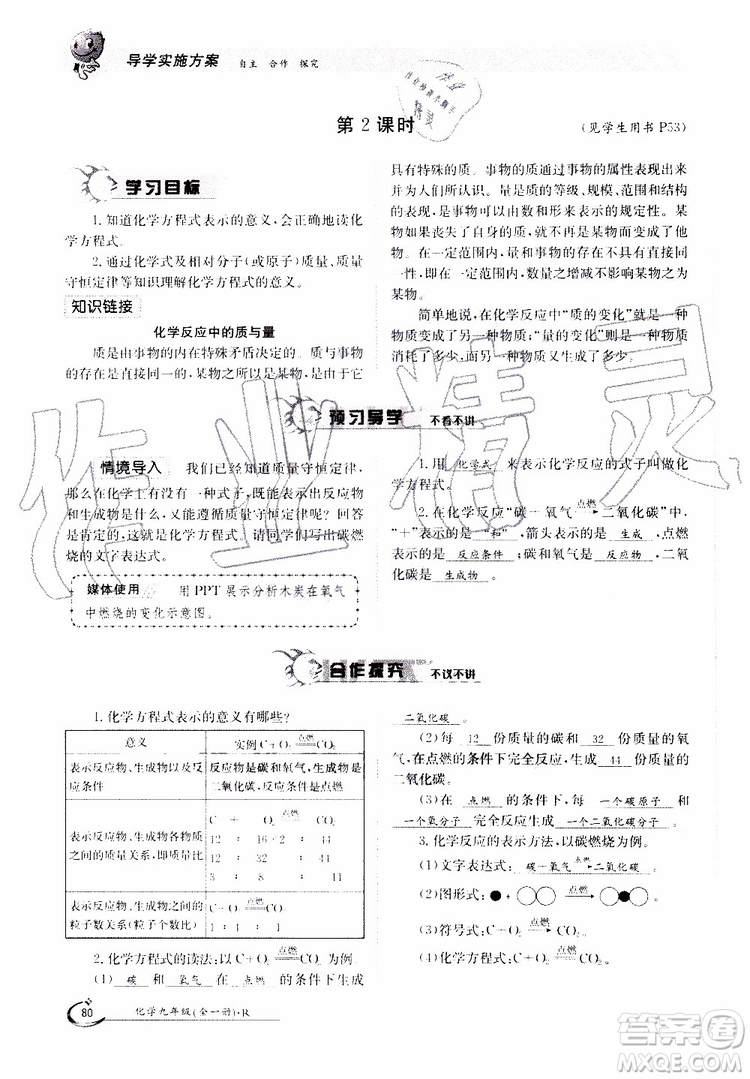 导学实施方案 自主 合作 探究
第2课时
(见学生用书 P53)
学习目标
1.知道化学方程式表示的意义,会正确地读化
学方程式.
2.通过化学式及相对分子(或原子)质量、质量
守恒定律等知识理解化学方程式的意义.
知识链接
化学反应中的质与量
质是由事物的内在特殊矛盾决定的。质与事物
的存在是直接同一的,某物之所以是某物,就在于它
具有特殊的质。事物的质通过事物的属性表现出来
并为人们所认识。量是质的等级、规模、范围和结构
的表现,是事物可以由数和形来表示的规定性。某
物如果丧失了自身的质,就不再是某物而变成了他
物。在一定范围内,量和事物的存在不具有直接同
一性,在一定范围内,数量之增减不影响某物之为
某物。
简单地说,在化学反应中“质的变化”就是一种
物质变成了另一种物质;“量的变化”则是一种物质
消耗了多少,而另一种物质又生成了多少。
预习导学 不看不讲
情境导入 我们已经知道质量守恒定律,
那么在化学上有没有一种式子,既能表示出反应物
和生成物是什么,又能遵循质量守恒定律呢?回答
是肯定的,这就是化学方程式。请同学们写出碳燃
烧的文字表达式。
媒体使用 用PPT展示分析木炭在氧气
中燃烧的变化示意图。
1.用 化学式 来表示化学反应的式子叫做化
学方程式。
2.在化学反应“碳+氧气 点燃→ 二氧化碳”中,
“+”表示的是 “和” ,箭头表示的是生成,点燃
是 反应条件 ;碳和氧气是 反应物 ,二氧
化碳是 生成物 。
合作探究 不议不讲
1.化学方程式表示的意义有哪些?
意义 实例 C+O₂ 点燃═ CO₂
表示反应物、生成物以及反应条件 反应物是碳和氧气,生成物是二氧化碳,反应条件是点燃
表示反应物、生成物各物质之间的质量关系,即质量比 C + O₂ 点燃═ CO₂
12 : 16×2 : 44
12 : 32 : 44
3 : 8 : 11
表示反应物、生成物之间的粒子数关系(粒子数比) C+O₂ 点燃═ CO₂
1 : 1 : 1
2.化学方程式的读法:以 C+O₂ 点燃═ CO₂ 为例。
(1) 碳 和 氧气 在 点燃 的条件下生成
二氧化碳 。
(2)每 12 份质量的碳和 32 份质量的氧
气,在点燃的条件下完全反应,生成 44 份质量的
二氧化碳。
(3)在 点燃 的条件下,每 一个碳原子 和
一个氧分子 完全反应生成 一个二氧化碳分子 。
3.化学反应的表示方法,以碳燃烧为例。
(1)文字表达式: 碳+氧气 点燃→ 二氧化碳
(2)图形式: ●+○○ 点燃→ ○●○
(3)符号式: C+O₂ 点燃→ CO₂
(4)化学方程式: C+O₂ 点燃═ CO₂
80 化学九年级(全一册)·R
作业精灵
答案圈
MXQE.COM